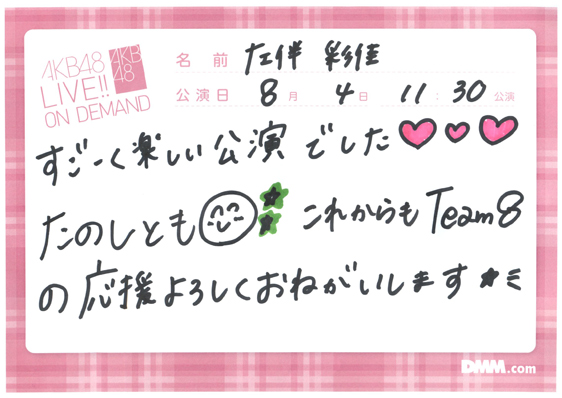 AKB48
LIVE!!
ON DEMAND
AKB
48
名前 左伴 彩佳
公演日 8月 4日 11:30 公演
すごーく楽しい公演でした
たのしとも これからもTeam8
の応援よろしくおねがいします
DMM.com